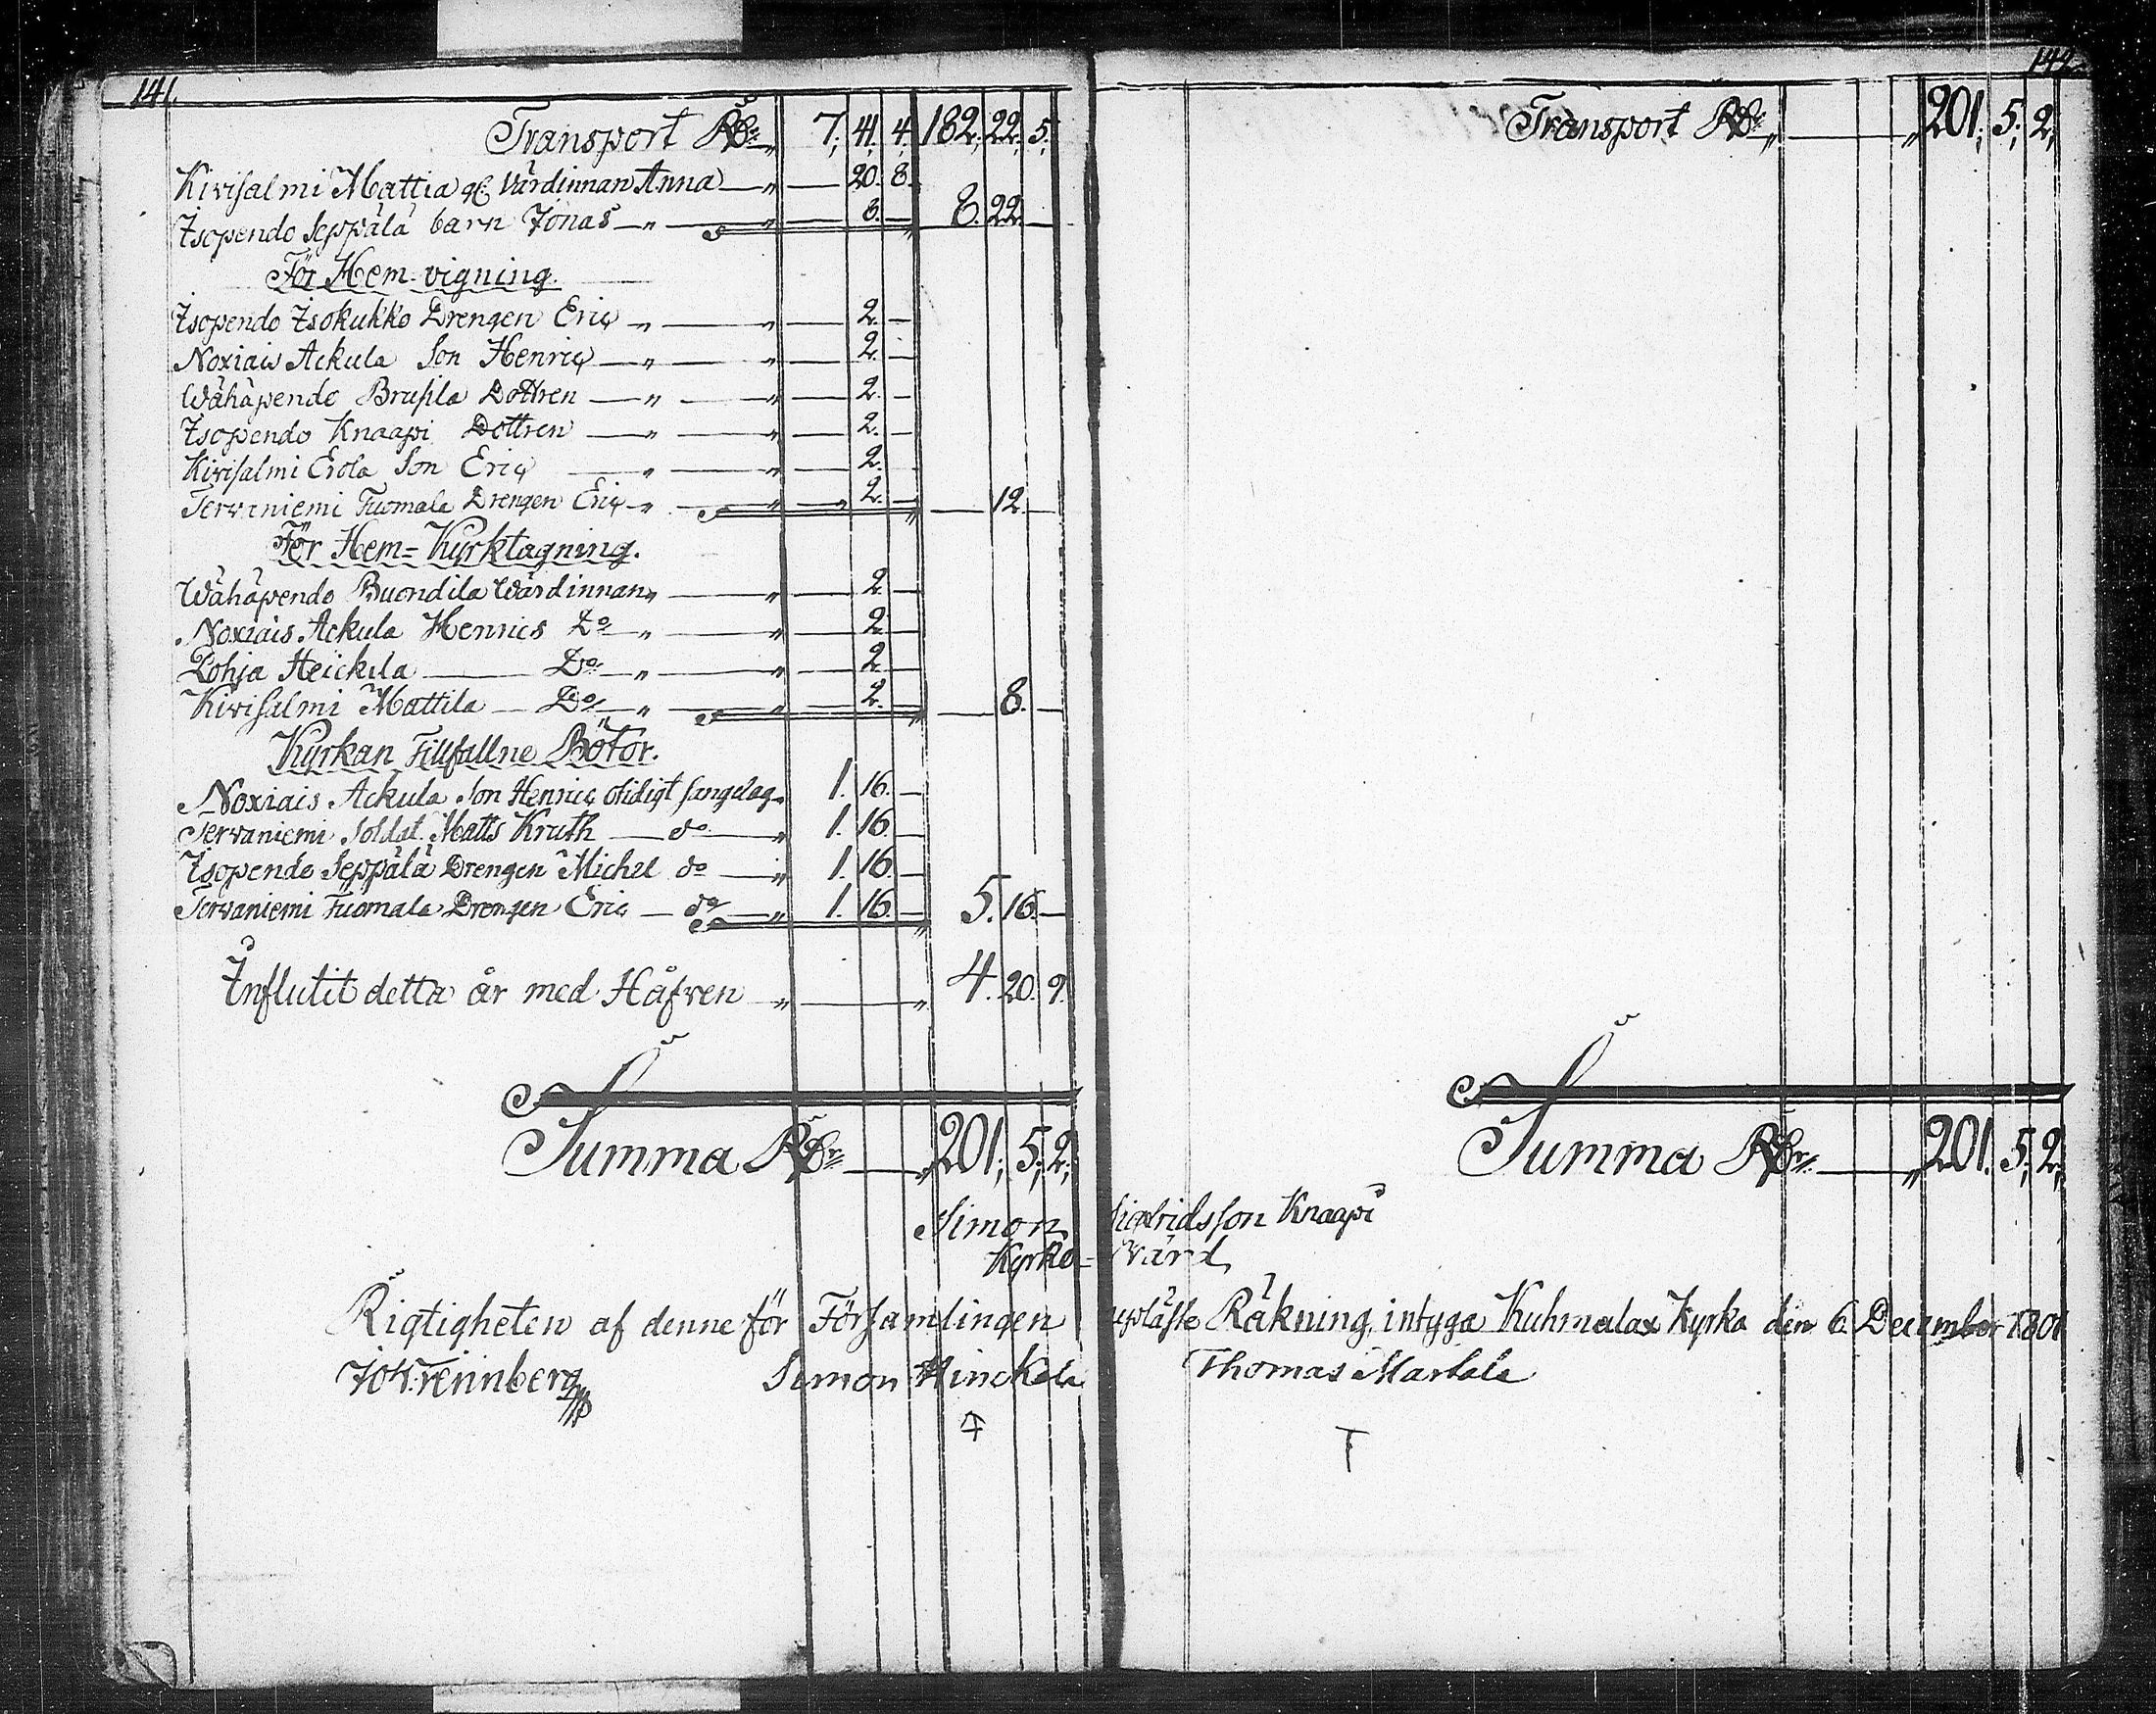 141.
Transport Rdr „ 7, 41, 4, 182, 22, 5,
Kivisalmi Mattia gl. Värdinnan Anna — „ — 20. 8.
Isopendo Seppälä barn Jonas — „ — 8. — 8. 22. —
För Hem-vigning.
Isopendo Isokukko Drengen Eric — „ — 2. —
Noxiais Ackula Son Henric — „ — 2. —
Wähäpendo Brusila Dottren — „ — 2. —
Isopendo Knaapi Dottren — „ — 2. —
Kivisalmi Erola Son Eric — „ — 2. —
Tervaniemi Tuomala Drengen Eric — „ — 2. — — 12. —
För Hem-Kyrktagning.
Wähäpendo Buondila Wärdinnan „ — 2. —
Noxiais Ackula Henrics Do — „ — 2. —
Lohja Heickila — Do — „ — 2. —
Kivisalmi Mattila — Do — „ — 2. — — 8. —
Kyrkan Tillfallne Böter.
Noxiais Ackula Son Henric otidigt sängelag „ 1. 16. —
Tervaniemi Soldat Matts Kruth — do — „ 1. 16. —
Isopendo Seppälä Drengen Michel do — „ 1. 16. —
Tervaniemi Tuomala Drengen Eric — do — „ 1. 16. — 5. 16. —
Influtit detta år med Håfven — „ — „ 4. 20. 9.
Summa Rdr — „ 201, 5, 2,
142.
Transport Rdr „ — „ 201, 5, 2,
Summa Rdr — „ 201. 5, 2,
Simon Sigfridsson Knaapi
Kyrko-värd
Rigtigheten af denne för Församlingen upläste Räkning, intyga Kuhmalax Kyrka den 6 December 1801
Joh. Tennberg Simon Hinckala Thomas Martala